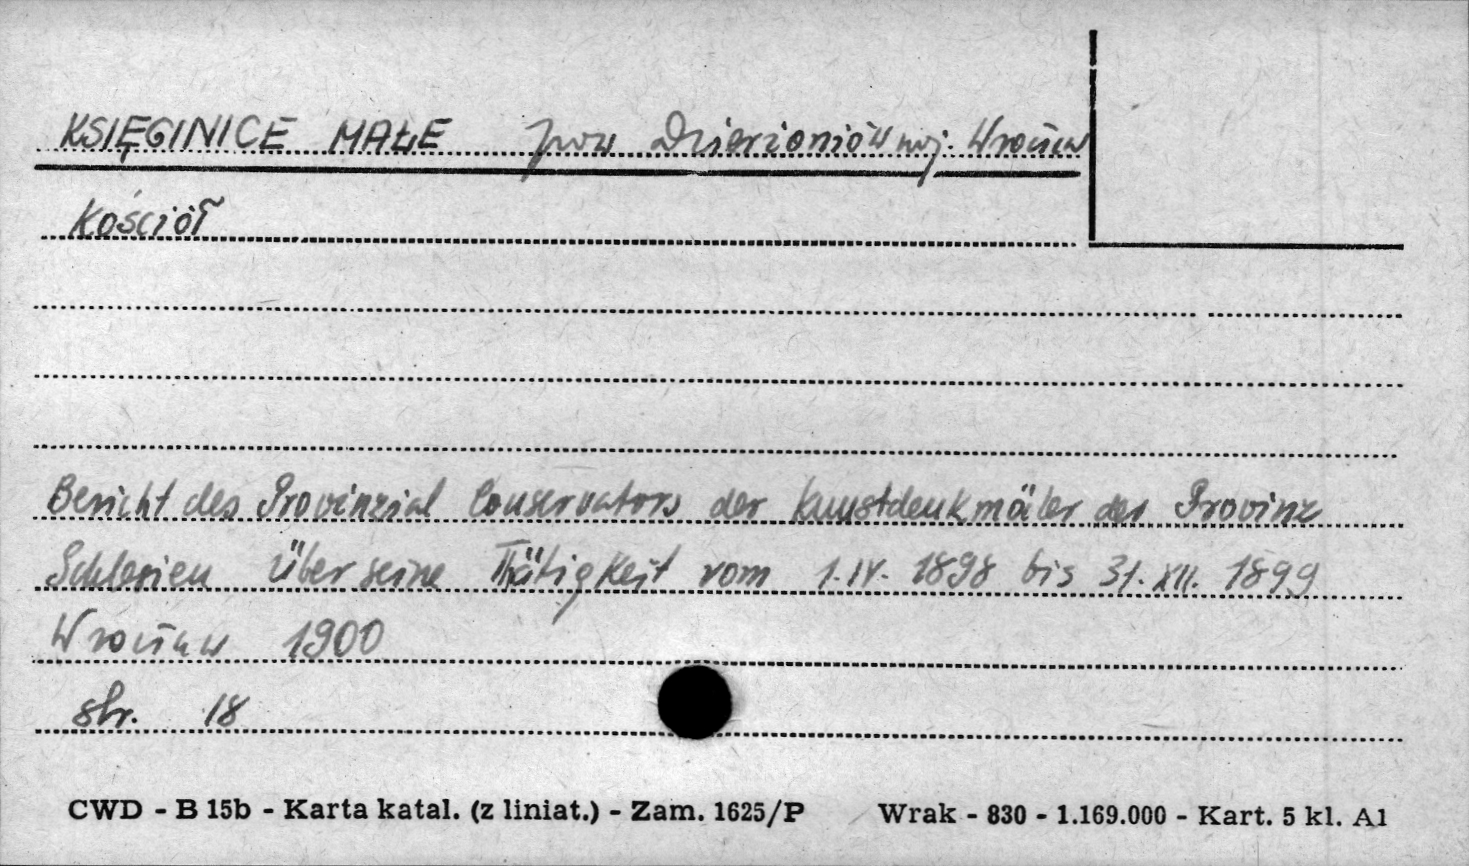 KSIĘGINICE MAŁE pow Dzierżoniów woj. Wrocław
Kościół
Bericht des Provinzial Conservators der Kunstdenkmäler der Provinz
Schlesien Über seine Thätigkeit vom 1.IV. 1898 bis 31.XII. 1899
Wrocław 1900
str. 18
CWD - B 15b - Karta katal. (z liniat.) - Zam. 1625/P Wrak - 830 - 1.169.000 - Kart. 5 kl. A1